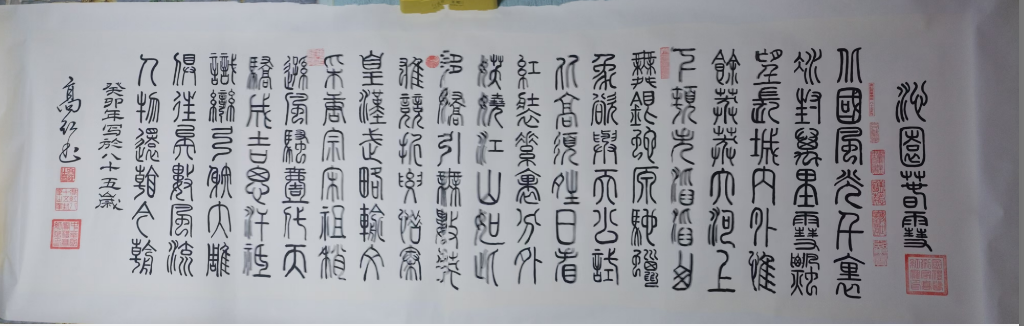 沁園春雪
北國風光千裏
冰封萬里雪飄
望長城內外惟
餘莽莽大河上
下頓失滔滔山
舞銀蛇原馳蠟
象欲與天公試
比高須晴日看
紅裝素裹分外
妖嬈江山如此
多嬌引無數英
雄競折腰惜秦
皇漢武略輸文
采唐宗宋祖稍
遜風騷壹代天
驕成吉思汗祇
識彎弓射大雕
俱往矣數風流
人物還看今朝
癸卯年写於八十五歲
高